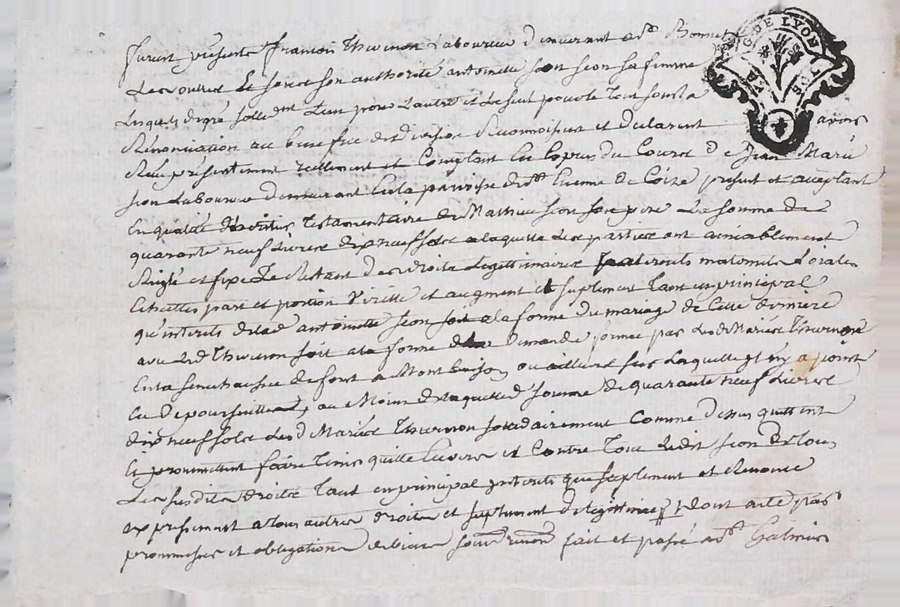 furent présents francois Thevenon Laboureur demeurant a St Bonnet
Les Coutres Et sous son authorité antoinette sion sa femme
Lesquels de gré sollidt L'un pour L'autre et Le seul pour le Tout sous La
Renonciation au benefice de division Reconnoissent et declarent avoir
Reçu présentement reellement et Comptant de Marie
sion Laboureur demeurant En La parroisse de St Etienne de Coize present et acceptant
En qualité d'héritier Testamentaire de Mathieu sion son père La somme de
quarante neuf Livres dix neuf sols a laquelle Les parties ont amiablement
Reiglé et fixé Le Restant des droits Legittimaires paternels maternels
Et telles part et portion Virille et augment et suplement tant en principal
qu'interets de lad antoinette sion soit a la forme du mariage de Cette dernière
avec Led Thevenon soit a la forme de la demande formée par Lesd Mariés Thevenon
En la senechaussée de forest a Montbrison ou ailleurs sur Laquelle Il n'y a point
Eu de poursuittes, au Moien de laquelle somme de quarante neuf Livres
dix neuf sols Lesd Mariés Thevenon solidairement Comme dessus quittent
Et promettent faire Tenir quitte Envers et Contre Tous Ledit sion de tous
Les susdits droits Tant en principal interets que suplement et Renonce
expressement a tous autres droits et suplement de legittime dont acte par
promesses et obligations de biens fait et passé a St Galmier
G. DE LYON